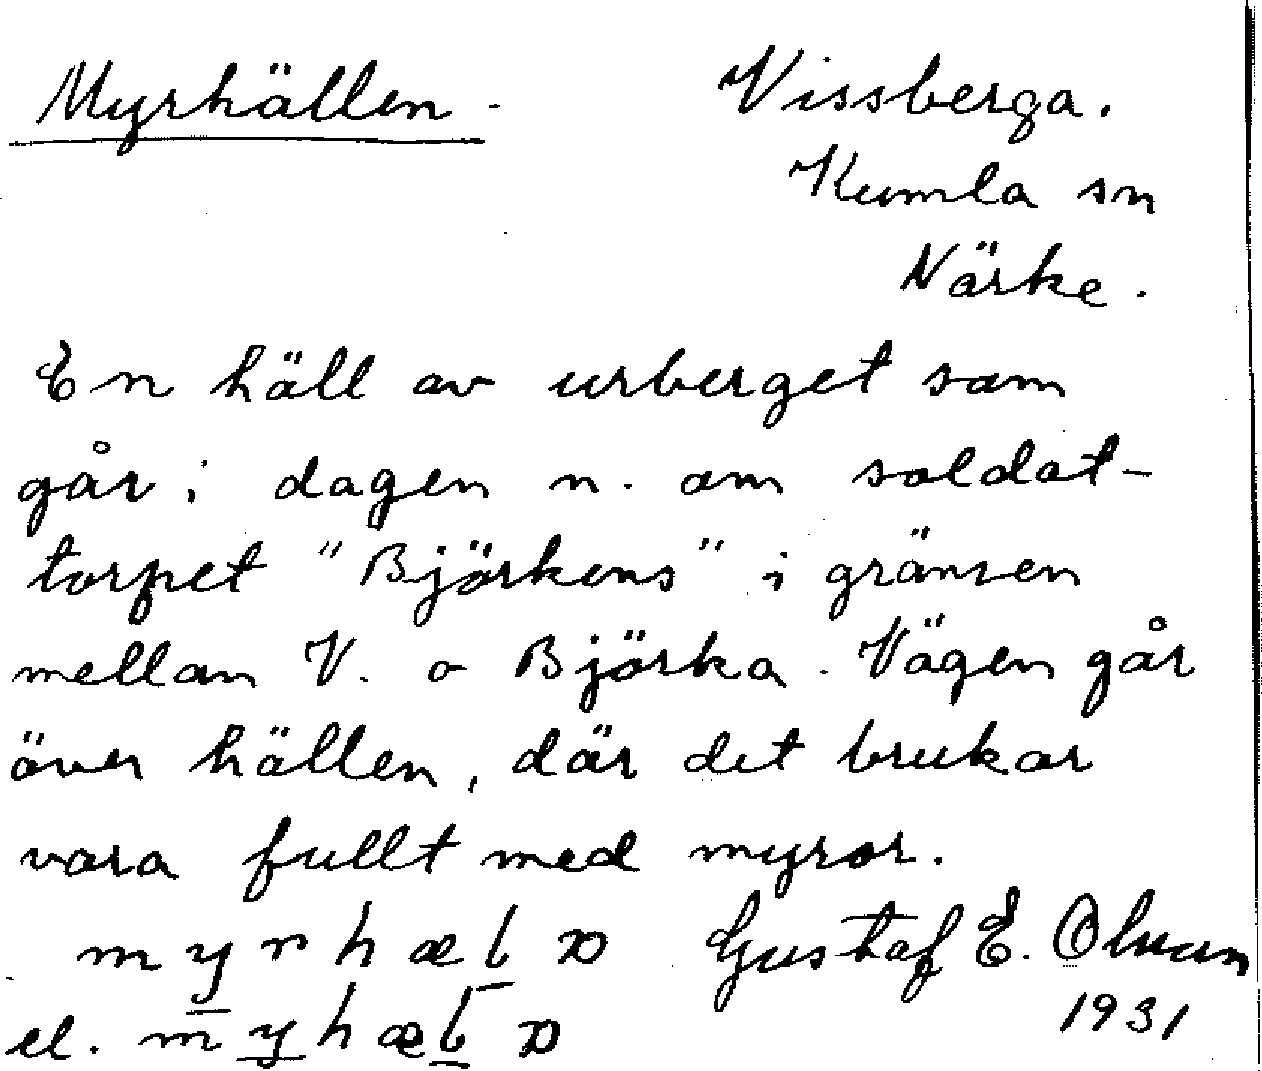 Myrhällen.
Vissberga.
Kumla sn
Närke.
En häll av urberget som
går i dagen n. om soldat-
torpet "Björkens" i gränsen
mellan V. o Björka. Vägen går
över hällen, där det brukar
vara fullt med myror.
myrhæl
Gustaf E. Olsson
el. myhæl
1931